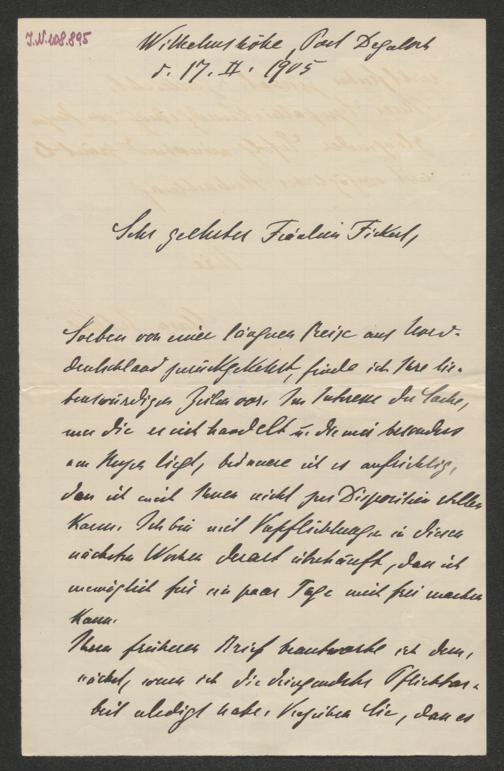 J.N.108.895
Wilhelmshöhe, Post Degerloch
d. 17. II. 1905
Sehr geehrtes Fräulein Fickert,
Soeben von einer längeren Reise aus Nord-
deutschland zurückgekehrt, finde ich Ihre lie-
benswürdigen Zeilen vor. Im Interesse der Sache,
um die es sich handelt u. die mir besonders
am Herzen liegt, bedauere ich es aufrichtig,
dass ich mich Ihnen nicht zur Disposition stellen
kann. Ich bin mit Verpflichtungen in diesen
nächsten Wochen derart überhäuft, dass ich
unmöglich für ein paar Tage mich frei machen
kann.
Ihren früheren Brief beantworte ich dem-
nächst, wenn ich die dringendste Pflichtar-
beit erledigt habe. Verzeihen Sie, dass es